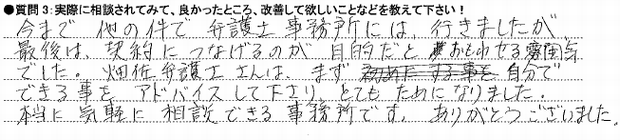 ●質問3:実際に相談されてみて、良かったところ、改善して欲しいことなどを教えて下さい!
今まで 他の件で 弁護士事務所には、行きましたが、
最後は、契約につなげるのが 目的だと おもわせる雰囲気
でした。畑佐弁護士さんは、まず 初めにする事を 自分で
できる事を アドバイスして下さり、とても ためになりました。
本当に 気軽に 相談できる事務所です。ありがとうございました。